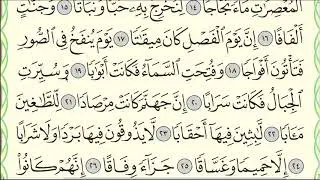 ٱلْمُعْصِرَٰتِ مَآءً ثَجَّاجًا ١٤ لِّنُخْرِجَ بِهِۦ حَبًّا وَنَبَاتًا ١٥ وَجَنَّٰتٍ
أَلْفَافًا ١٦ إِنَّ يَوْمَ ٱلْفَصْلِ كَانَ مِيقَٰتًا ١٧ يَوْمَ يُنفَخُ فِى ٱلصُّورِ
فَتَأْتُونَ أَفْوَاجًا ١٨ وَفُتِحَتِ ٱلسَّمَآءُ فَكَانَتْ أَبْوَٰبًا ١٩ وَسُيِّرَتِ
ٱلْجِبَالُ فَكَانَتْ سَرَابًا ٢٠ إِنَّ جَهَنَّمَ كَانَتْ مِرْصَادًا ٢١ لِّلطَّٰغِينَ
مَـَٔابًا ٢٢ لَّٰبِثِينَ فِيهَآ أَحْقَابًا ٢٣ لَّا يَذُوقُونَ فِيهَا بَرْدًا وَلَا شَرَابًا
٢٤ إِلَّا حَمِيمًا وَغَسَّاقًا ٢٥ جَزَآءً وِفَاقًا ٢٦ إِنَّهُمْ كَانُوا۟